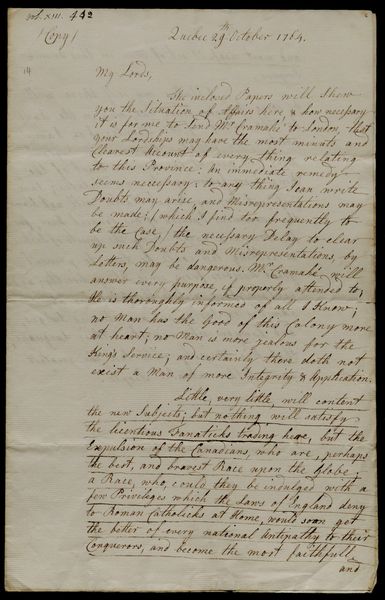 vol. XIII. 442
/Copy/
Quebec 29th October 1764.
14
My Lords,
The inclosed Papers will shew
you the Situation of Affairs here & how necessary
it is for me to Send Mr Cramahé to London, that
your Lordships may have the most minute and
Clearest Account of every thing relating
to this Province: An immediate remedy
seems neccessary; to any thing I can write
Doubts may arise, and Misrepresentations may
be made; / which I find too frequently to
be the Case, / the necessary Delay to clear
up such Doubts and Misrepresentations, by
Letters, may be dangerous, Mr Cramahé will
answer every purpose, if properly attended to;
He is thoroughly informed of all I Know;
no Man has the Good of this Colony more
at heart; no Man is more zealous for the
King's Service; and certainly there doth not
exist a Man of more Integrity & Application.
Little, very little, will content
the new Subjects; but nothing will satisfy
the licentious Fanaticks trading here, but the
Expulsion of the Canadians, who are, perhaps
the best, and bravest Race upon the Globe
a Race, who, could they be indulged with a
few Privileges which the Laws of England deny
to Roman Catholicks at Home, would soon get
the better of every national Antipathy to their
Conquerors, and become the most faithfull
and